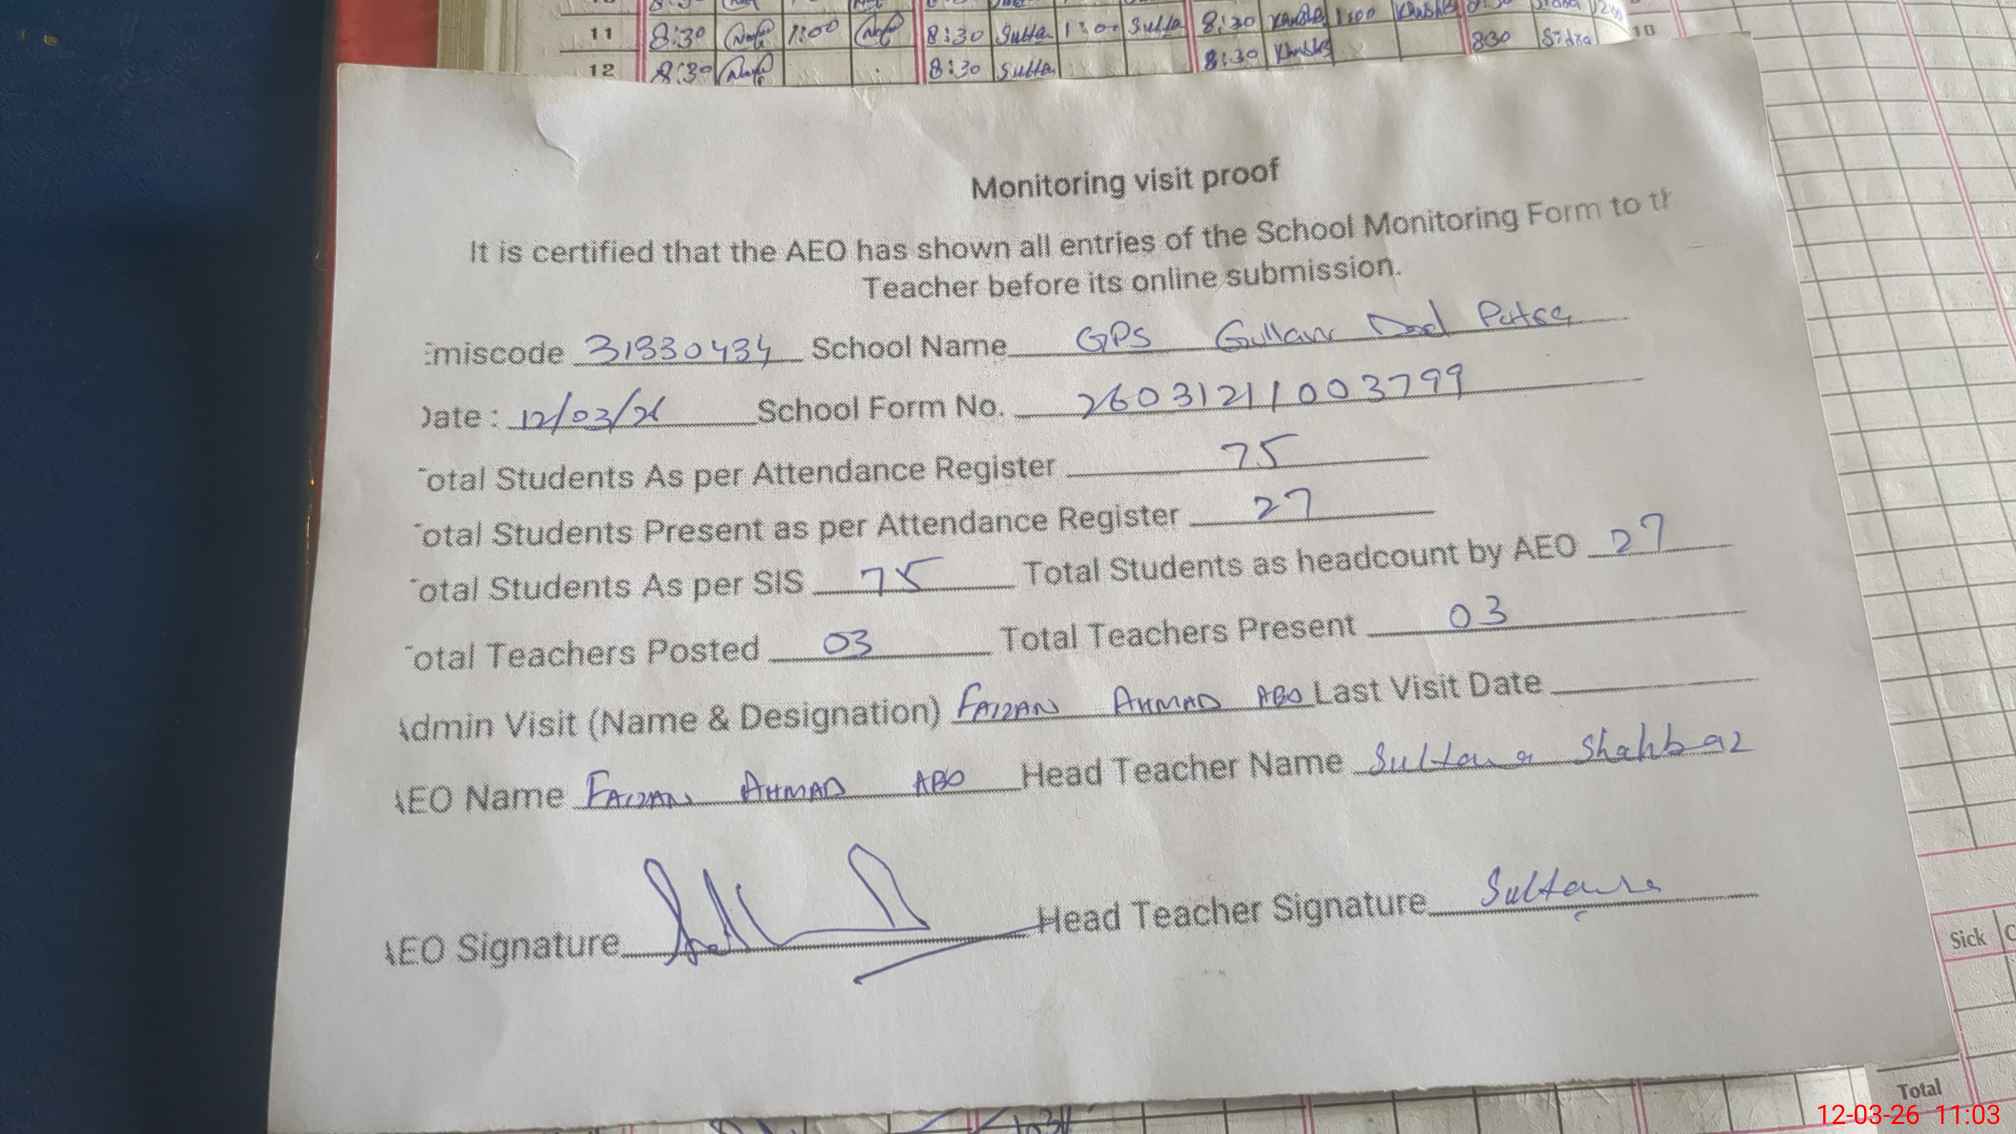 11 8:30 1:00 8:30 Sulta 1:00 Sulta 8:30 Khushb 1:00 Khushb
12 8:30 8:30 Sulta 8:30 Khushb 830 Sidra 10
Monitoring visit proof
It is certified that the AEO has shown all entries of the School Monitoring Form to th
Teacher before its online submission.
Emiscode 31330434 School Name GPS Gullan Dad Patsa
Date : 12/03/26 School Form No. 26031211003799
Total Students As per Attendance Register 75
Total Students Present as per Attendance Register 27
Total Students As per SIS 75 Total Students as headcount by AEO 27
Total Teachers Posted 03 Total Teachers Present 03
Admin Visit (Name & Designation) FAIZAN AHMAD AEO Last Visit Date
AEO Name FAIZAN AHMAD AEO Head Teacher Name Sultana Shahbaz
AEO Signature Head Teacher Signature Sultana
Sick
Total
12-03-26 11:03